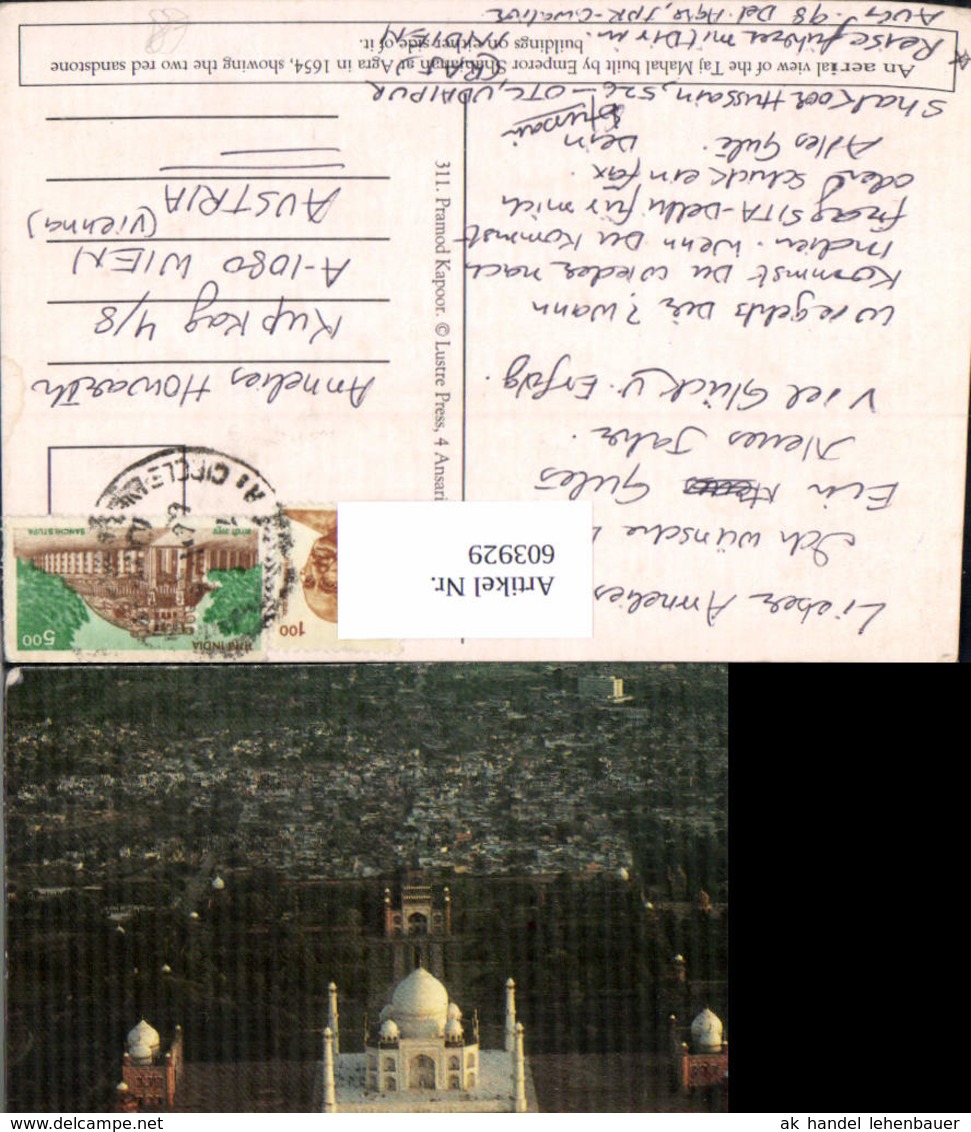 Lieber Annelies
Ich wünsche
Ein Gutes
Neues Jahr.
Viel Glück u. Erfolg.
Wie gehts Dir? Wann
Kommst Du wieder nach
Indien. Wenn Du Kommst
frag SITA-Delhi für mich
oder schick ein fax.
Alles Gute. Dein
Hussain
Shakoor Hussain, 526-OTC, UDAIPUR
(RAJ)
INDIEN
Reiseführer mit Dir in
AUG. 98 Del. Agra, JPR-Gwalior
An aerial view of the Taj Mahal built by Emperor Shahjahan at Agra in 1654, showing the two red sandstone
buildings on either side of it.
311. Pramod Kapoor. © Lustre Press, 4 Ansari
Annelies Howarth
Kupkag 4/8
A-1080 WIEN
(Vienna)
AUSTRIA
भारत INDIA
5.00
सांची स्तूप SANCHI STUPA
1.00
Artikel Nr.
603929
88
ak handel lehenbauer